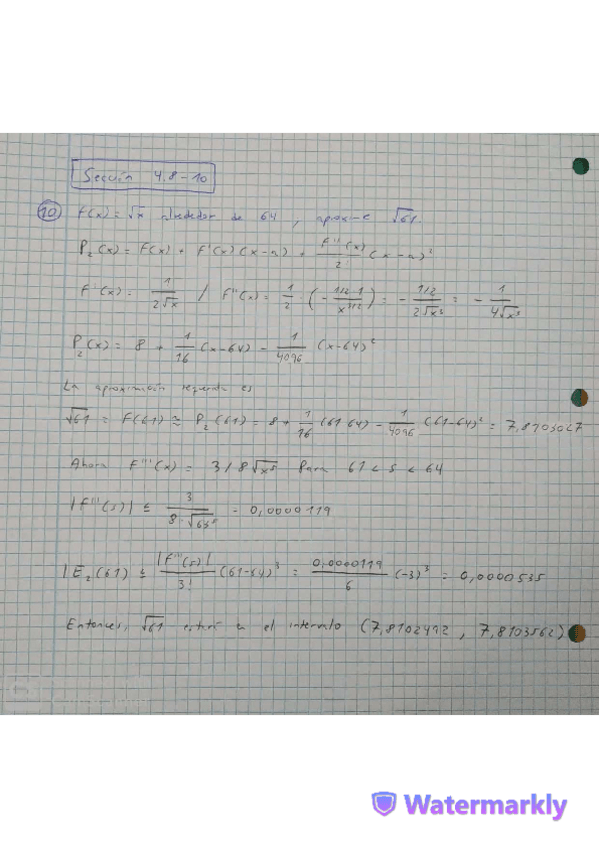 Sección 4.8-10
10 f(x) = √x alrededor de 64, aproxime √61.
P₂(x) = F(x) + F'(x)(x-a) + F''(x)/2! (x-a)²
F'(x) = 1/(2√x) / F''(x) = 1/2 · (- 1/2·1/x^(3/2)) = - (1/2)/(2√x³) = - 1/(4√x³)
P₂(x) = 8 + 1/16 (x-64) - 1/4096 (x-64)²
La aproximación requerida es
√61 = F(61) ≅ P₂(61) = 8 + 1/16 (61-64) - 1/4096 (61-64)² = 7,8103027
Ahora F'''(x) = 3/8√x⁵ Para 61 < s < 64
|F'''(s)| ≤ 3/(8·√61⁵) = 0,0000119
|E₂(61) ≤ |F'''(s)|/3! (61-64)³ = 0,0000119/6 (-3)³ = 0,0000535
Entonces, √61 estará en el intervalo (7,8102492, 7,8103562)
Watermarkly